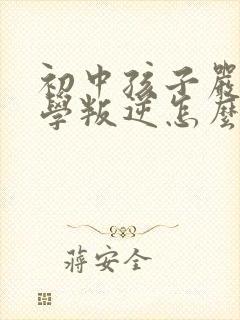 初中孩子嚴
學叛逆怎麼
蔣安全